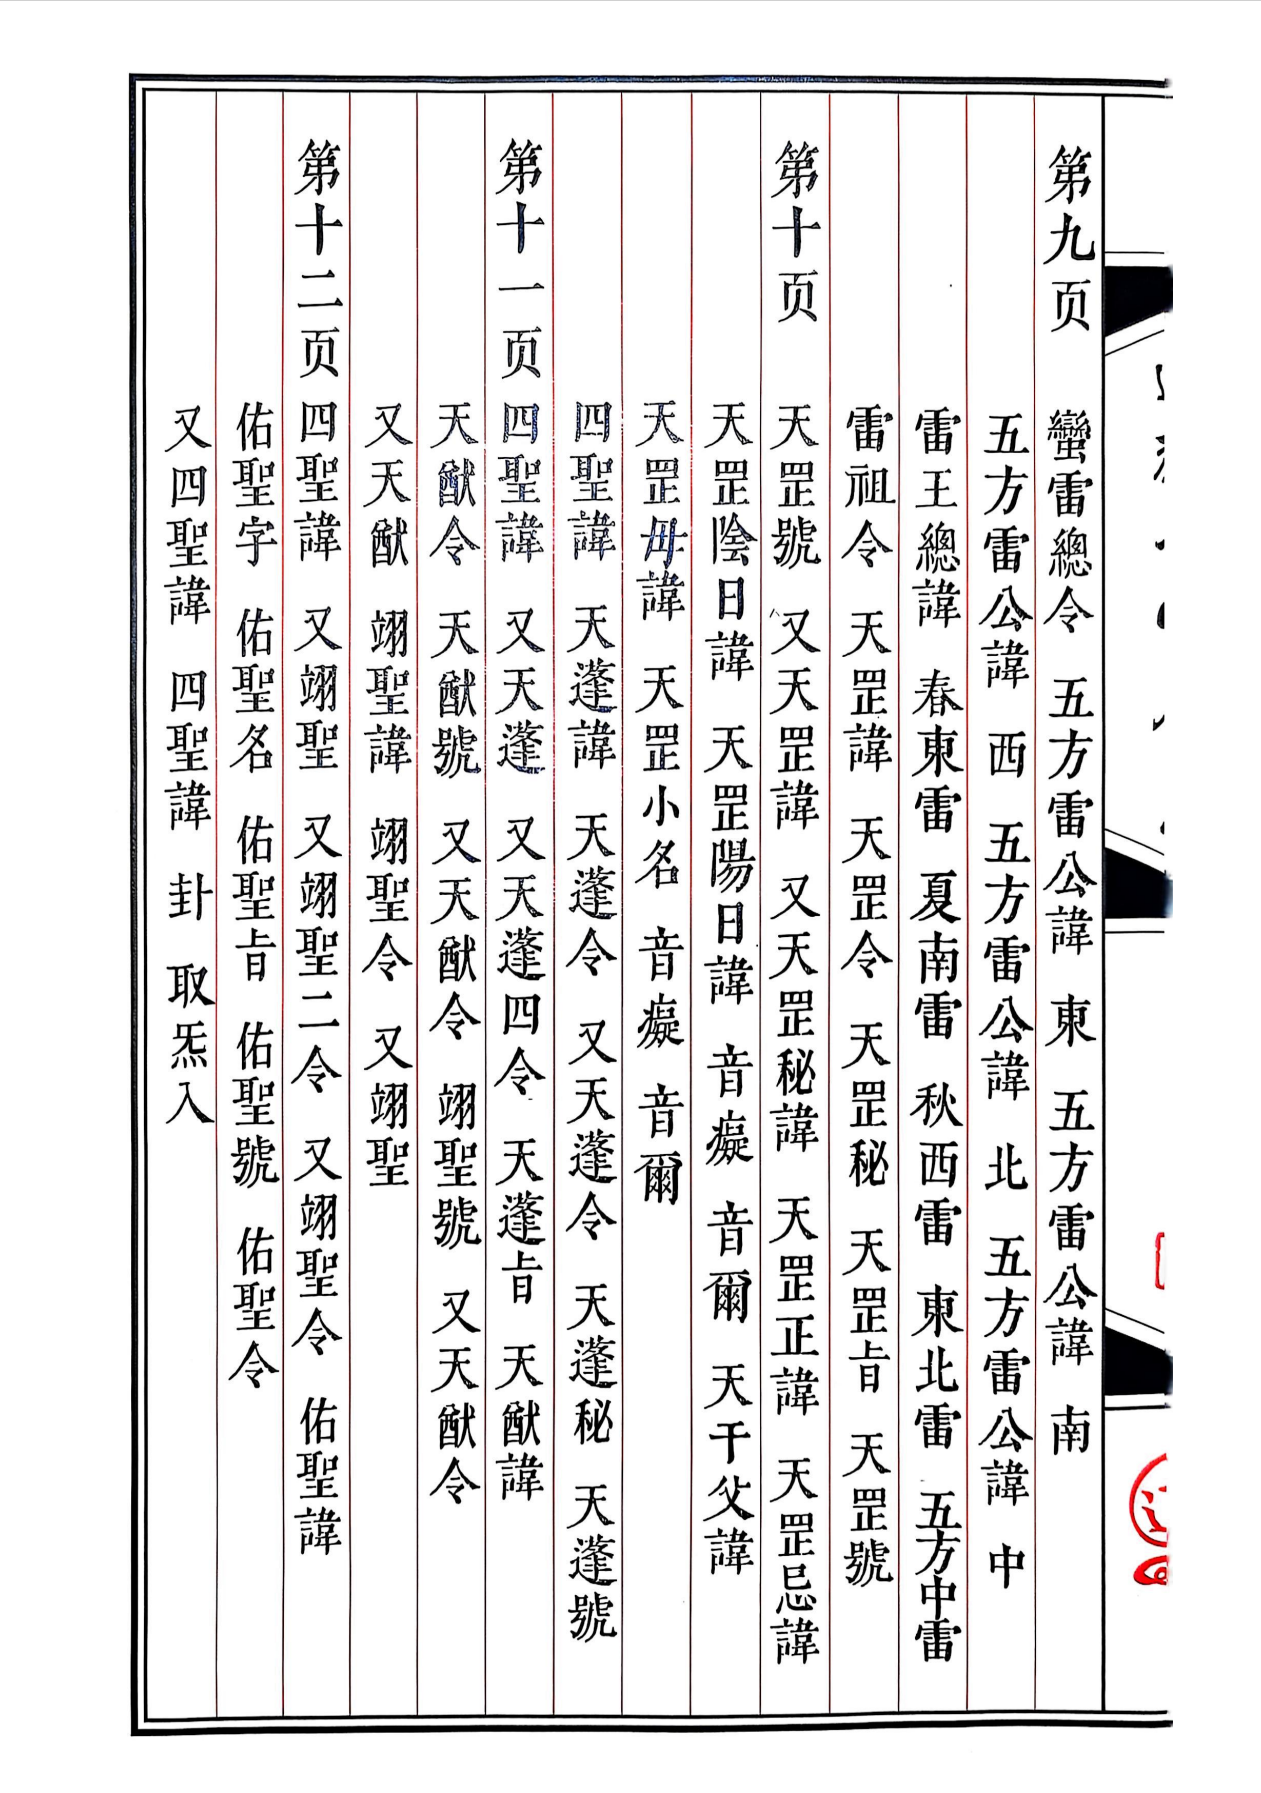 第九页 蠻雷總令 五方雷公諱 東 五方雷公諱 南
五方雷公諱 西 五方雷公諱 北 五方雷公諱 中
雷王總諱 春東雷 夏南雷 秋西雷 東北雷 五方中雷
雷祖令 天罡諱 天罡令 天罡秘 天罡㫖 天罡號
第十页 天罡號 又天罡諱 又天罡秘諱 天罡正諱 天罡忌諱
天罡陰日諱 天罡陽日諱 音癡 音爾 天干父諱
天罡毋諱 天罡小名 音癡 音爾
四聖諱 天蓬諱 天蓬令 又天蓬令 天蓬秘 天蓬號
第十一页 四聖諱 又天蓬 又天蓬四令 天蓬㫖 天猷諱
天猷令 天猷號 又天猷令 翊聖號 又天猷令
又天猷 翊聖諱 翊聖令 又翊聖
第十二页 四聖諱 又翊聖 又翊聖二令 又翊聖令 佑聖諱
佑聖字 佑聖名 佑聖㫖 佑聖號 佑聖令
又四聖諱 四聖諱 卦 取炁入